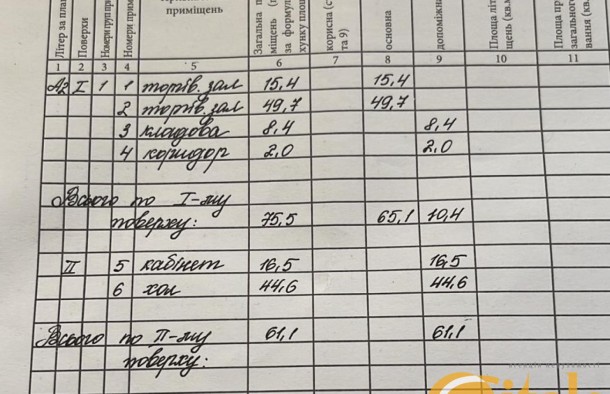 Літер за пла
Поверхи
Номери груп при
Номери прим
приміщень
Загальна п
міщень (
за формул
хунку площ
корисна (с
та 9)
основна
допоміжна
Площа літ
щень (кв.м
Площа пр
загального
вання (кв.
1 2 3 4 5 6 7 8 9 10 11
А2 I 1 1 торгів. зал 15,4 15,4
2 торгів. зал 49,7 49,7
3 кладова 8,4 8,4
4 коридор 2,0 2,0
Всього по I-му
поверху: 75,5 65,1 10,4
II 5 кабінет 16,5 16,5
6 хол 44,6 44,6
Всього по II-му 61,1 61,1
поверху: